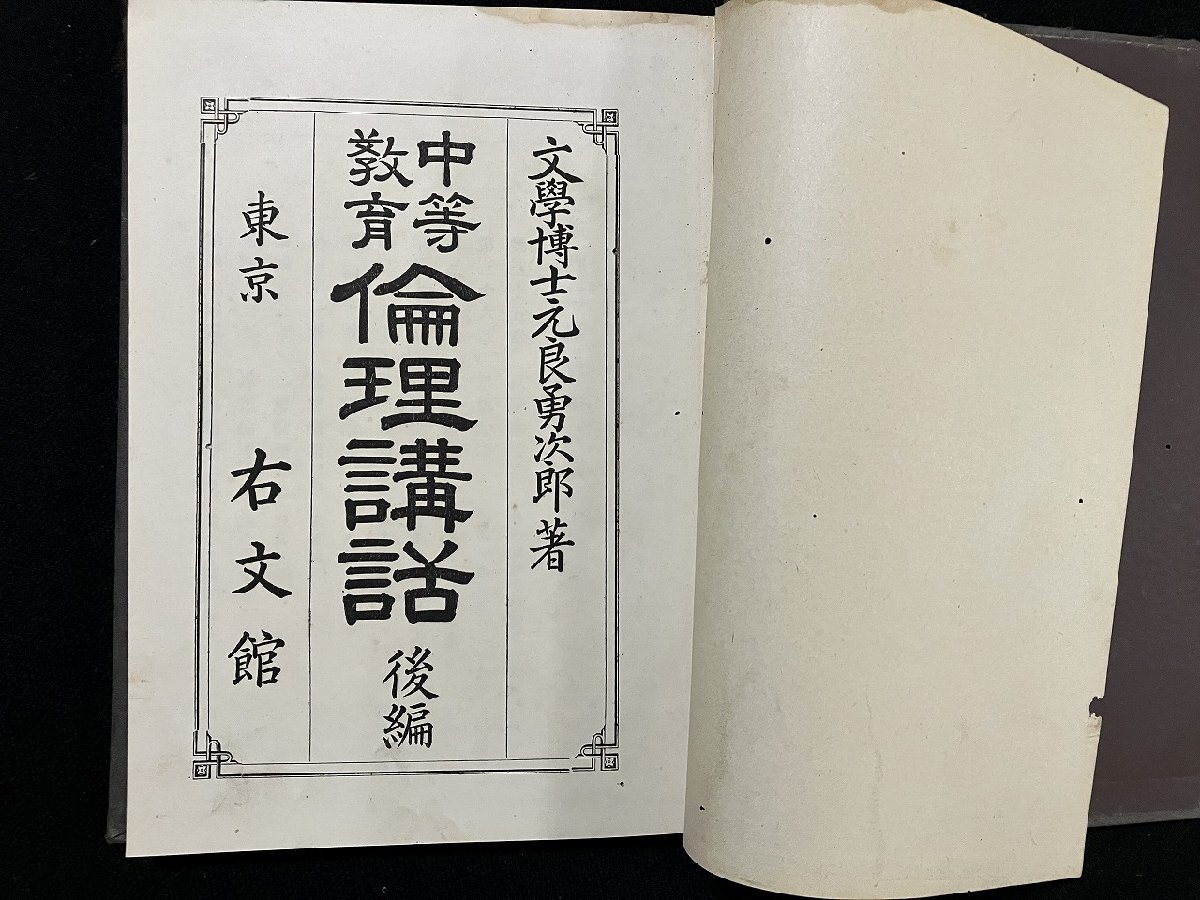 文學博士元良勇次郎著
中等
教育
倫理講話
後編
東京
右文館